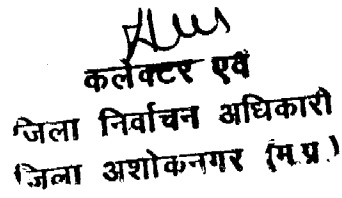 कलेक्टर एवं
जिला निर्वाचन अधिकारी
जिला अशोकनगर (म.प्र.)